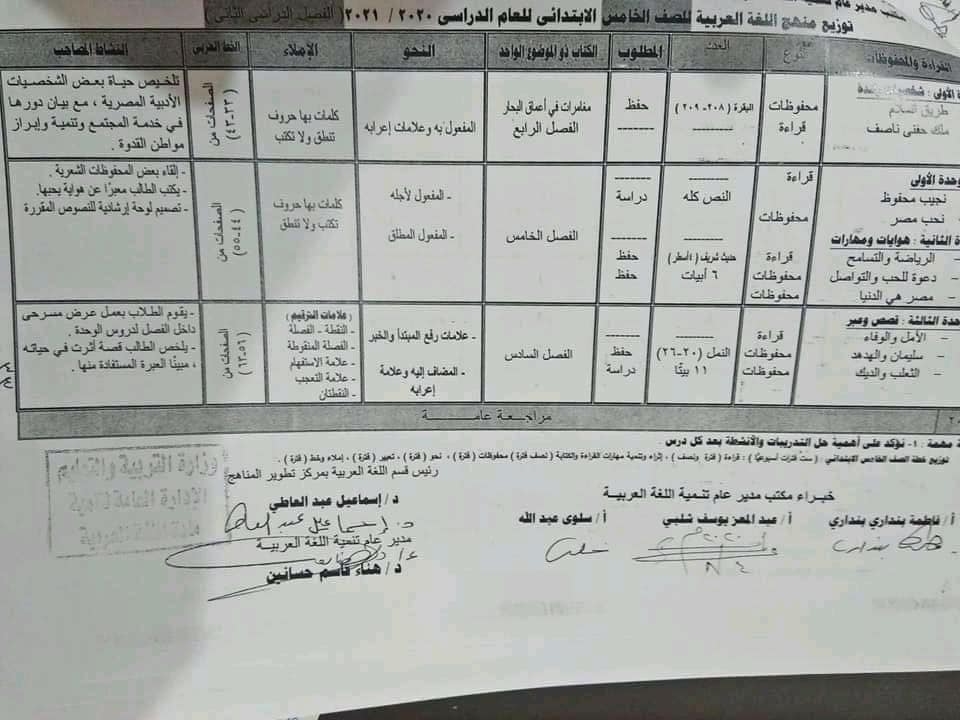 توزيع منهج اللغة العربية للصف الخامس الابتدائى للعام الدراسى ٢٠٢٠ / ٢٠٢١ ( الفصل الدراسى الثانى )
القراءة والمحفوظات
النوع
العدد
المطلوب
الكتاب ذو الموضوع الواحد
النحو
الإملاء
الخط العربى
النشاط المصاحب
طريق السلام
ملك حفنى ناصف
محفوظات
قراءة
البقرة ( ٢٠٨ – ٢٠٩ )
--------
حفظ
-------
مغامرات في أعماق البحار
الفصل الرابع
المفعول به وعلامات إعرابه
كلمات بها حروف
تنطق ولا تكتب
الصفحات من
( ٣٣-٤٣ )
تلخيص حياة بعض الشخصيات
الأدبية المصرية ، مع بيان دورها
في خدمة المجتمع وتنمية وإبراز
مواطن القدوة .
وحدة الأولى
نجيب محفوظ
– نحب مصر
ة الثانية : هوايات ومهارات
– الرياضة والتسامح
– دعوة للحب والتواصل
– مصر هي الدنيا
قراءة
محفوظات
قراءة
محفوظات
محفوظات
--------
النص كله
--------
حديث شريف (٤ أسطر)
٦ أبيات
-------
دراسة
-------
حفظ
حفظ
الفصل الخامس
- المفعول لأجله
- المفعول المطلق
كلمات بها حروف
تكتب ولا تنطق
الصفحات من
( ٤٤-٥٥ )
- إلقاء بعض المحفوظات الشعرية .
- يكتب الطالب معبرًا عن هواية يحبها.
- تصميم لوحة إرشادية للنصوص المقررة
حدة الثالثة : قصص وعبر
– الأمل والوفاء
– سليمان والهدهد
– الثعلب والديك
قراءة
محفوظات
محفوظات
--------
النمل (٢٠-٢٦)
١١ بيتًا
-------
حفظ
دراسة
الفصل السادس
- علامات رفع المبتدأ والخبر
- المضاف إليه وعلامة
إعرابه
(علامات الترقيم)
- النقطة - الفصلة
- الفصلة المنقوطة
- علامة الاستفهام
- علامة التعجب
- النقطتان
الصفحات من
( ٥٦-٦٣ )
- يقوم الطلاب بعمل عرض مسرحى
داخل الفصل لدروس الوحدة .
- يلخص الطالب قصة أثرت في حياته
، مبينًا العبرة المستفادة منها .
مراجعة عامة
ة مهمة : ١- نؤكد على أهمية حل التدريبات والأنشطة بعد كل درس .
توزيع خطة الصف الخامس الابتدائي : ( ست فترات أسبوعيًا ) : قراءة ( فترة ونصف ) ، إثراء وتنمية مهارات القراءة والكتابة ( نصف فترة ) محفوظات ( فترة ) ، نحو ( فترة ) ، تعبير ( فترة ) ، إملاء وخط ( فترة )
خبراء مكتب مدير عام تنمية اللغة العربية
أ / فاطمة بنداري بنداري
أ / عبد المعز يوسف شلبي
أ / سلوى عبد الله
رئيس قسم اللغة العربية بمركز تطوير المناهج
د / إسماعيل عبد العاطي
د. إسماعيل عبد العاطي
مدير عام تنمية اللغة العربية
د / هناء قاسم حسانين
وزارة التربية والتعليم
الإدارة العامة لتنمية
اللغة العربية